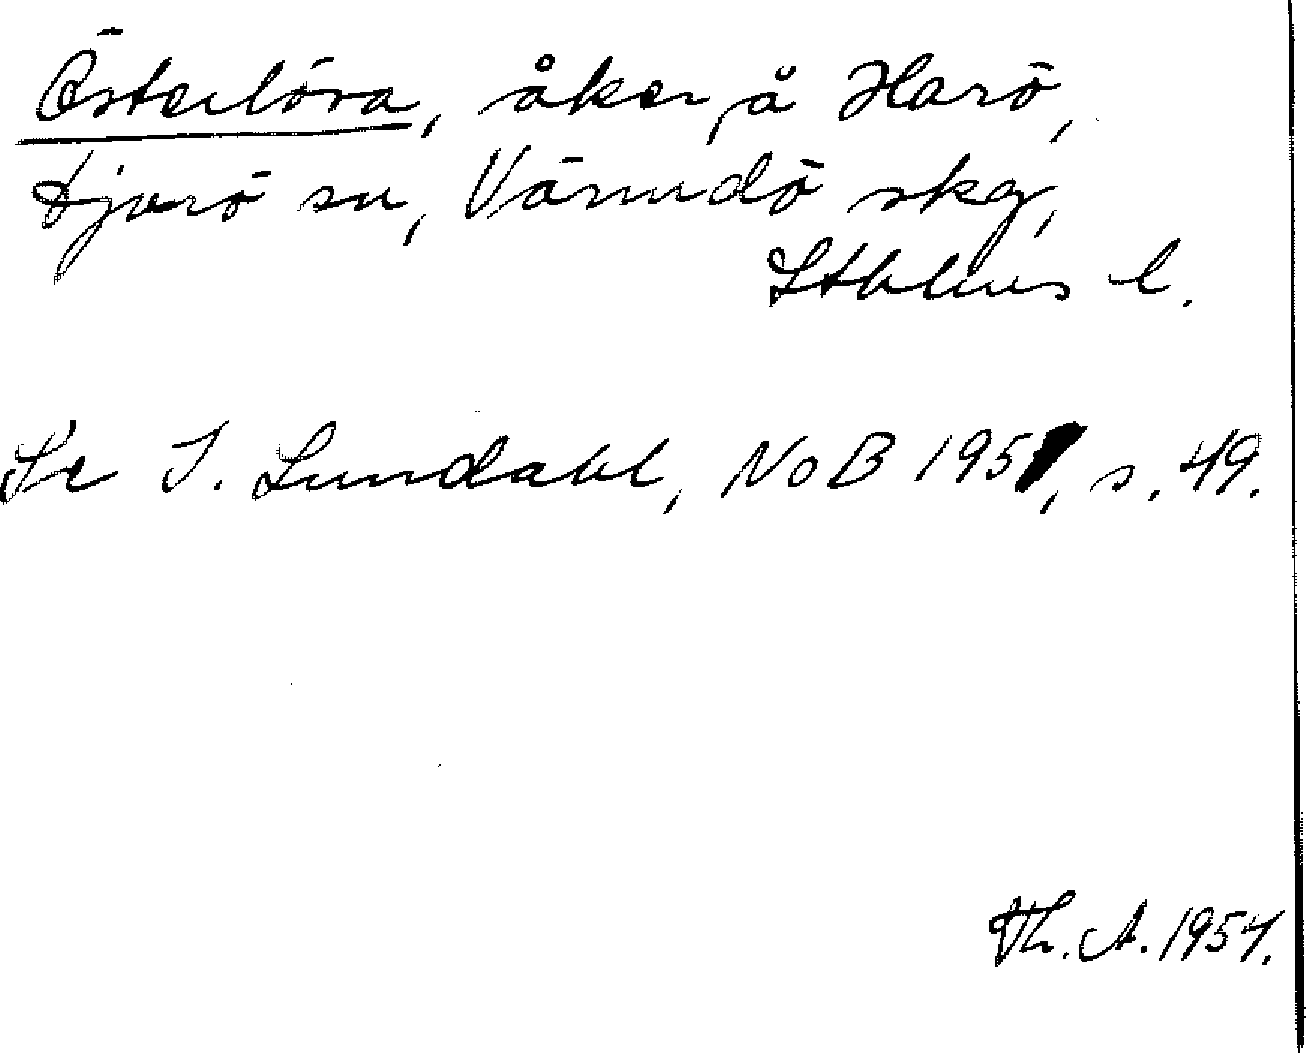 Österlöra, åker å Harö,
Djurö sn, Värmdö skg,
Sthlms l.
Se I. Lundahl, NoB 1951, s. 49.
Th. A. 1954.